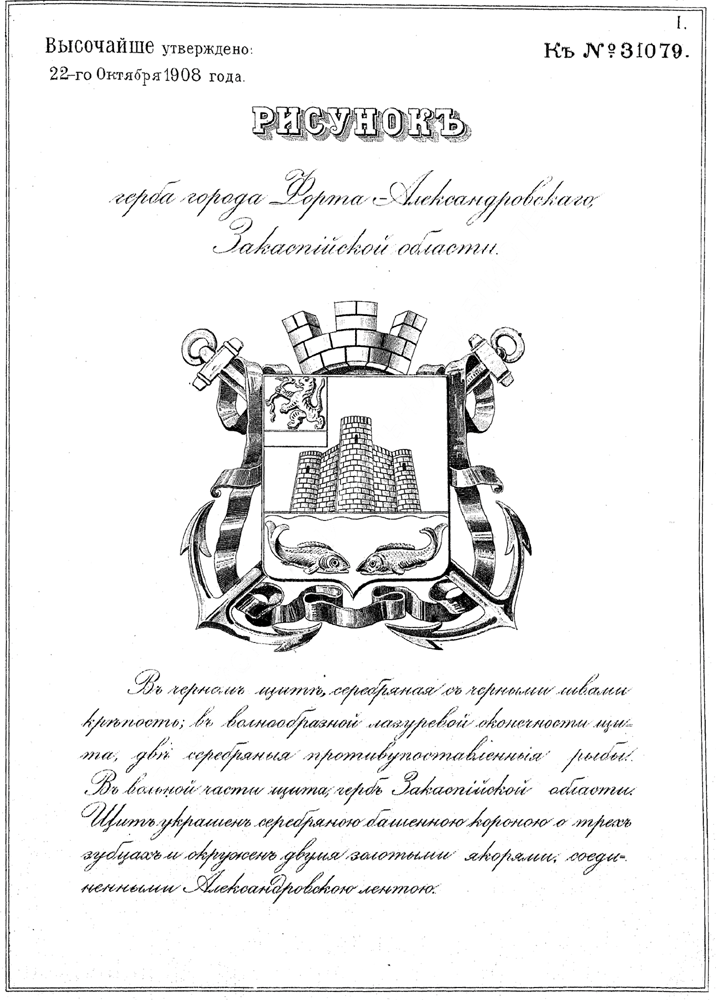 I.
Высочайше утверждено:
22-го Октября 1908 года.
Къ № 31079.
РИСУНОКЪ
герба города Форта-Александровскаго,
Закаспійской области.
Въ черномъ щитѣ, серебряная съ черными швами
крѣпость; въ волнообразной лазуревой оконечности щи-
та, двѣ серебряныя противупоставленныя рыбы.
Въ вольной части щита, гербъ Закаспійской области.
Щитъ украшенъ серебряною башенною короною о трехъ
зубцахъ и окруженъ двумя золотыми якорями, соеди-
ненными Александровскою лентою.